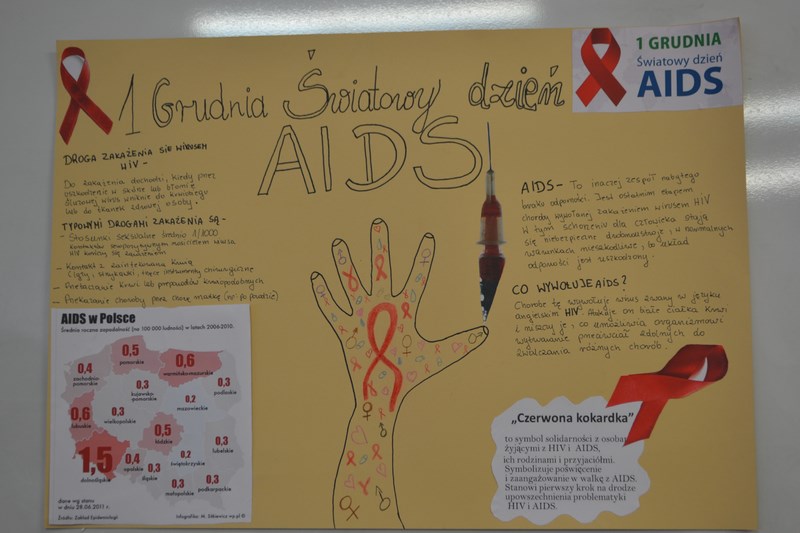 1 Grudnia Światowy dzień
AIDS
1 GRUDNIA
Światowy dzień
AIDS
DROGA ZAKAŻENIA SIĘ WIRUSEM
HIV -
Do zakażenia dochodzi, kiedy przez
uszkodzenie w skórze lub błonie
śluzowej wirus wniknie do
lub do tkanek zdrowej osoby.
TYPOWYMI DROGAMI ZAKAŻENIA SĄ -
- Stosunki seksualne średnio 1/1000
HIV kończy się
- Kontakt z krwią
(igły, strzykawki, instrumenty chirurgiczne
- krwi lub preparatów krwiopodobnych
- Przekazanie choroby przez matkę (np. po porodzie)
AIDS - To inaczej zespół nabytego
braku odporności. Jest ostatnim etapem
choroby wywołanej zakażeniem wirusem HIV
W tym schorzeniu dla człowieka stają
się niebezpieczne drobnoustroje, w normalnych
warunkach nieszkodliwe, bo układ
odporności jest uszkodzony.
CO WYWOŁUJE AIDS?
Chorobę tę wywołuje wirus zwany w języku
angielskim HIV. Atakuje on białe ciałka krwi
i niszczy je, co uniemożliwia organizmowi
wytwarzanie przeciwciał zdolnych do
zwalczania różnych chorób.
AIDS w Polsce
Średnia roczna zapadalność (na 100 000 ludności) w latach 2006-2010.
0,4
zachodnio-
pomorskie
0,5
pomorskie
0,6
warmińsko-mazurskie
0,3
podlaskie
0,3
kujawsko-
pomorskie
0,2
mazowieckie
0,6
lubuskie
0,3
wielkopolskie
0,5
łódzkie
0,3
lubelskie
1,5
dolnośląskie
0,4
opolskie
0,3
śląskie
0,2
świętokrzyskie
0,3
małopolskie
0,3
podkarpackie
dane wg stanu
w dniu 28.06.2011 r.
Źródło: Zakład Epidemiologii
Infografika: M. wp.pl ®
„Czerwona kokardka”
to symbol solidarności z osobami
żyjącymi z HIV i AIDS,
ich rodzinami i przyjaciółmi.
Symbolizuje poświęcenie
i zaangażowanie w walkę z AIDS.
Stanowi pierwszy krok na drodze
upowszechnienia problematyki
HIV i AIDS.